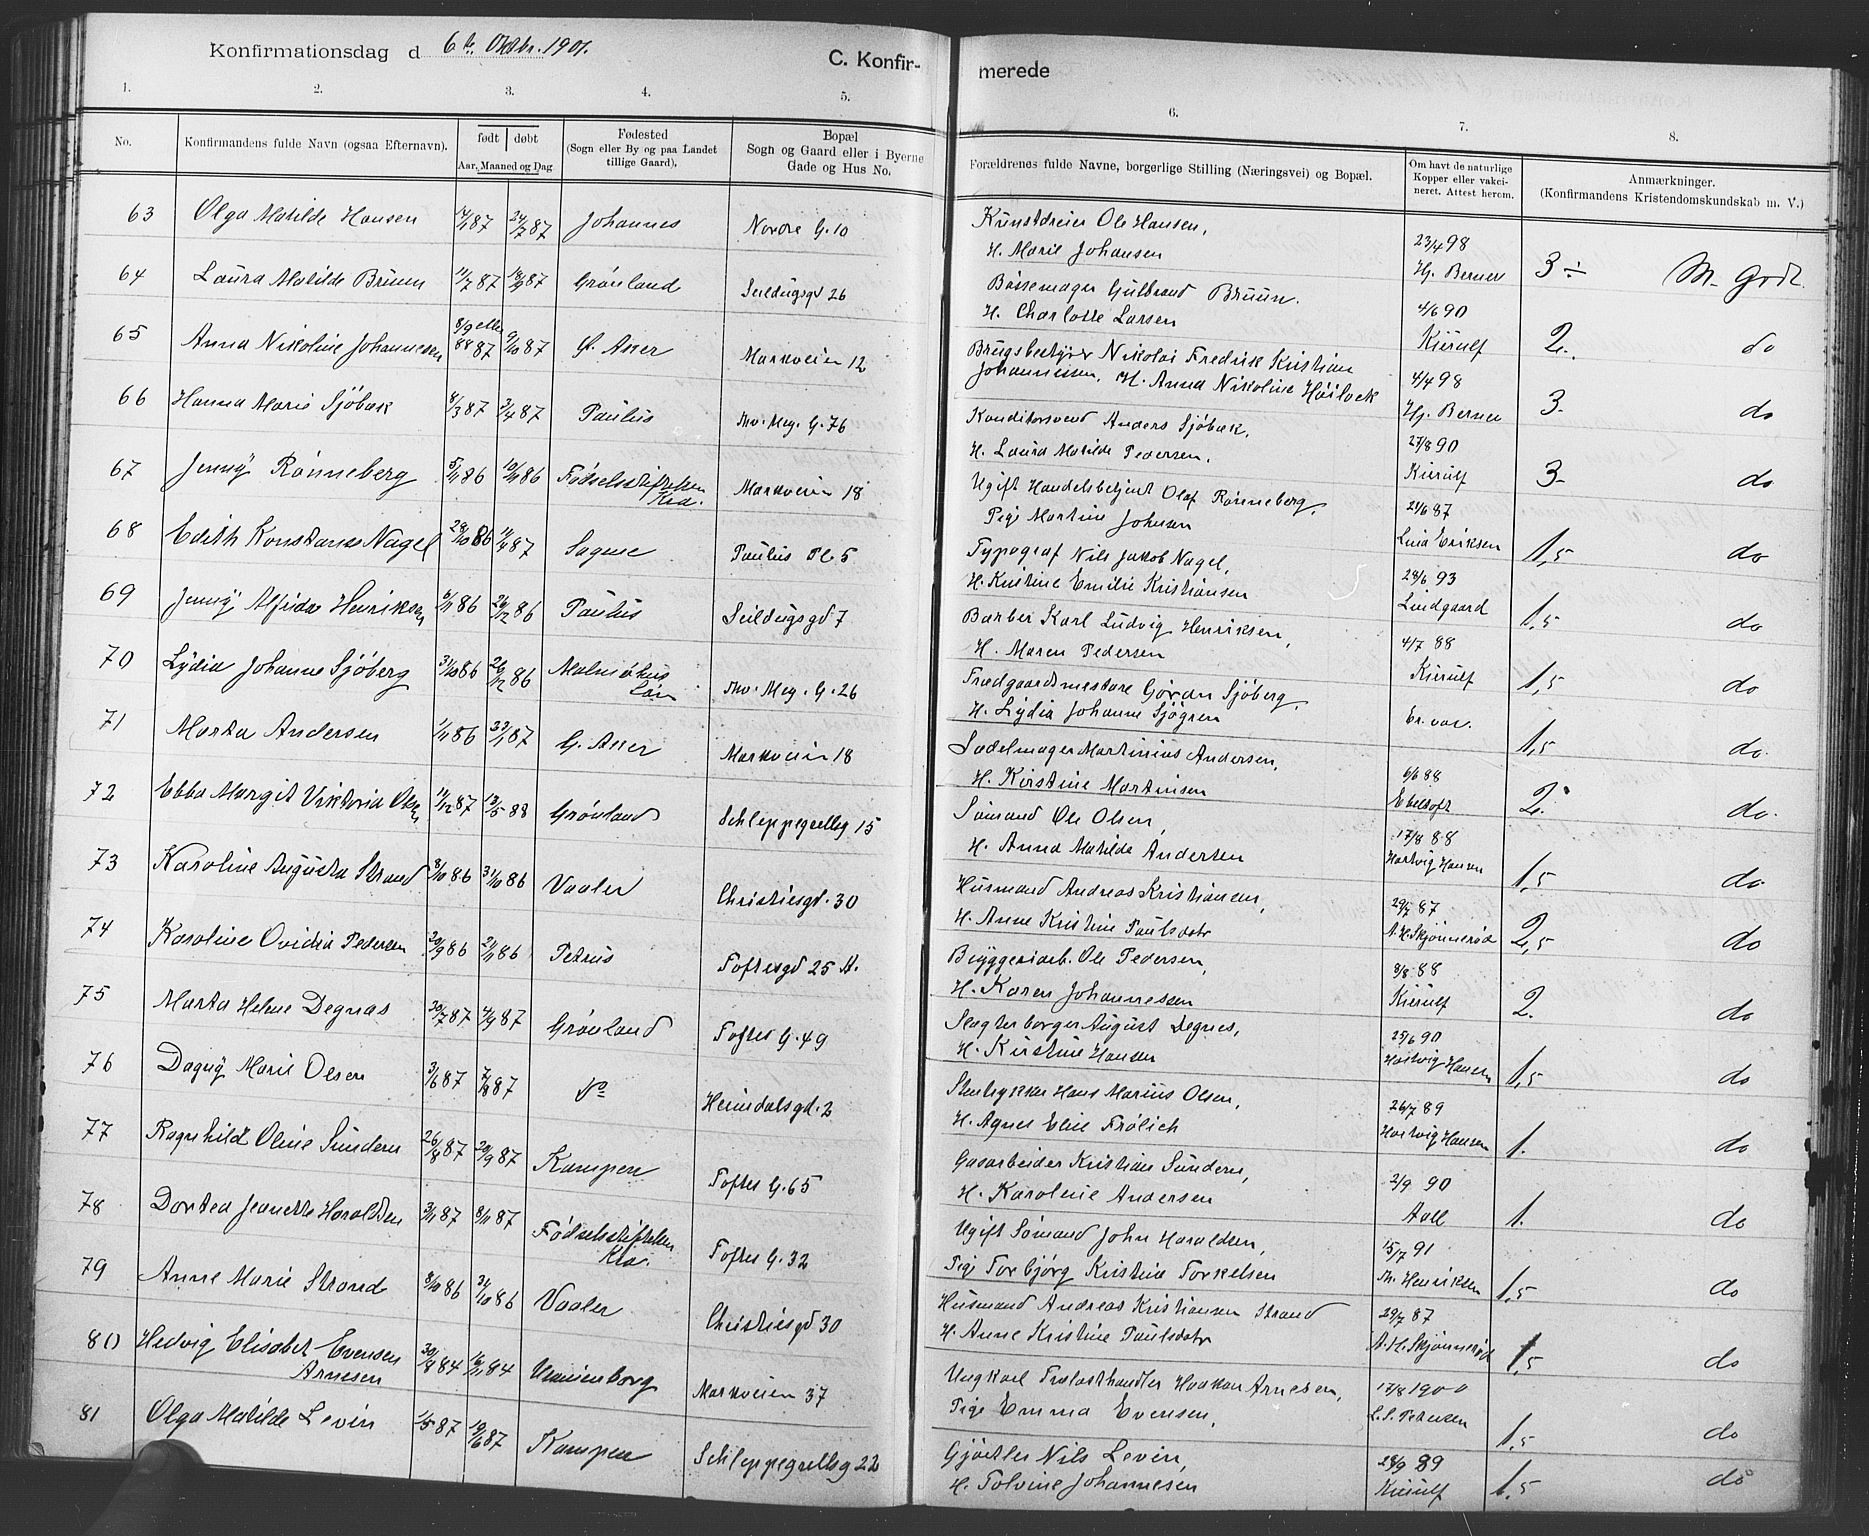 Konfirmationsdag d 6te Oktbr. 1901.
C. Konfir-
merede
1. 2. 3. 4. 5. 6. 7. 8.
No.
Konfirmandens fulde Navn (ogsaa Efternavn).
født døbt
Aar, Maaned og Dag
Fødested
(Sogn eller By og paa Landet
tillige Gaard).
Bopæl
Sogn og Gaard eller i Byerne
Gade og Hus No.
Forældrenes fulde Navne, borgerlige Stilling (Næringsvei) og Bopæl.
Om havt de naturlige
Kopper eller vakci-
neret. Attest herom.
Anmærkninger.
(Konfirmandens Kristendomskundskab m. V.)
63 Olga Matilde Hansen 87 24/7 87 Johannes Nordre G. 10
Kunstdreier Ole Hansen,
H. Marie Johansen 23/4 98
Hj. Berner 3÷ M. Godt.
64 Laura Matilde Bruun 11/7 87 18/9 87 Grønland Seildugsgd 26
Børsemager Gulbrand Bruun.
H. Charlotte Larsen 4/6 90
Kierulf 2. do
65 Anna Nikoline Johannesen 8/9 eller 87 9/10 87 V. Aker Markveien 12
Brugsbestyrer Nikolai Fredrik Kristian
Johannessen, H. Anna Nikoline Høilock 4/4 98
Hj. Berner 3. do
66 Hanna Marie Sjöbæk 8/3 87 3/4 87 Paulus Thv. Mey. G. 76
Konditorsvend Anders Sjöbæk,
H. Laura Matilde Pedersen. 27/8 90
Kierulf 3- do
67 Jenny Rønneberg 5/11 86 10/11 86 Fødselsstiftelsen
Kra. Markveien 18
Ugift Handelsbetjent Olaf Rønneberg,
Pige Martine Johnsen 21/6 87
Lina Eriksen 1,5 do
68 Edith Konstanse Nagel 28/10 86 11/4 87 Sagene Paulus Pl. 5
Typograf Nils Jakob Nagel,
H. Kristine Emilie Kristiansen 28/6 93
Lindgaard 1,5 do
69 Jenny Alfida Henriksen 6/11 86 26/12 86 Paulus Seildugsgd 7
Barber Karl Ludvig Henriksen,
H. Maren Pedersen 4/7 88
Kierulf 1,5 do
70 Lydia Johanne Sjöberg 31/10 86 26/12 86 Malmøhus
Län Thv. Mey. G. 26
Trædgaardsmestare Göran Sjöberg,
H. Lydia Johanne Sjögren Er. vac. 1,5 do.
71 Marta Andersen 1/11 86 23/1 87 G. Aker Markveien 18
Sadelmager Martinius Andersen,
H. Kirstine Martinsen 6/6 88
Ebeltoft 2. do.
72 Ebba Margit Viktoria Olsen 11/12 87 13/5 88 Grønland Schleppegrellsg 15
Sømand Ole Olsen,
H. Anna Matilde Andersen 17/8 88
Hartvig Hansen 1,5 do.
73 Karoline Augusta Strand 8/10 86 31/10 86 Vaaler Christiesgd. 30
Husmand Andreas Kristiansen,
H. Anne Kristine Paulsdatr 29/7 87
A. H. Skjønnerød 2,5 do
74 Karoline Ovidia Pedersen 20/9 86 21/11 86 Petrus Toftesgd 25 A.
Bryggeriarb. Ole Pedersen,
H. Karen Johannessen 8/8 88
Kierulf 2. do
75 Marta Helene Degnæs 30/7 87 4/9 87 Grønland Toftes G. 49
Slagterborger August Degnes,
H. Kirstine Hansen 25/6 90
Hartvig Hansen 1,5 do
76 Dagny Marie Olsen 3/6 87 7/8 87 do Heimdalsgd. 2
Stenhykker Hans Marius Olsen,
H. Agnes Elise Frölich 26/7 89
Hartvig Hansen 1. do
77 Ragnhild Oline Sundem 26/8 87 20/9 87 Kampen Toftes G. 65
Gasarbeider Kristian Sundem,
H. Karoline Andersen 2/9 90
Aall 1. do
78 Dortea Jeanette Haraldsen 3/11 87 8/11 87 Fødselsstiftelsen
Kra. Toftes G. 32
Ugift Sømand John Haraldsen,
Pige Torbjørg Kristine Torkelsen 15/7 91
M. Henriksen 1,5 do
79 Anne Marie Strand 8/10 86 31/10 86 Vaaler Christiesgd 30
Husmand Andreas Kristiansen Strand
H. Anne Kristine Paulsdatr 29/7 87
A. H. Skjønnerød 1,5 do
80 Hedvig Elisabet Evensen
Arnesen 30/8 84 16/11 84 Uranienborg Markveien 37
Ungkarl Trælasthandler Haakon Arnesen,
Pige Emma Evensen, 17/8 1900
L. S. Petersen 1,5 do
81 Olga Matilde Levin 1/5 87 19/6 87 Kampen Schleppegrellsg 22
Gjørtler Nils Levin,
H. Tolvine Johannesen 28/9 89
Kierulf 1,5 do